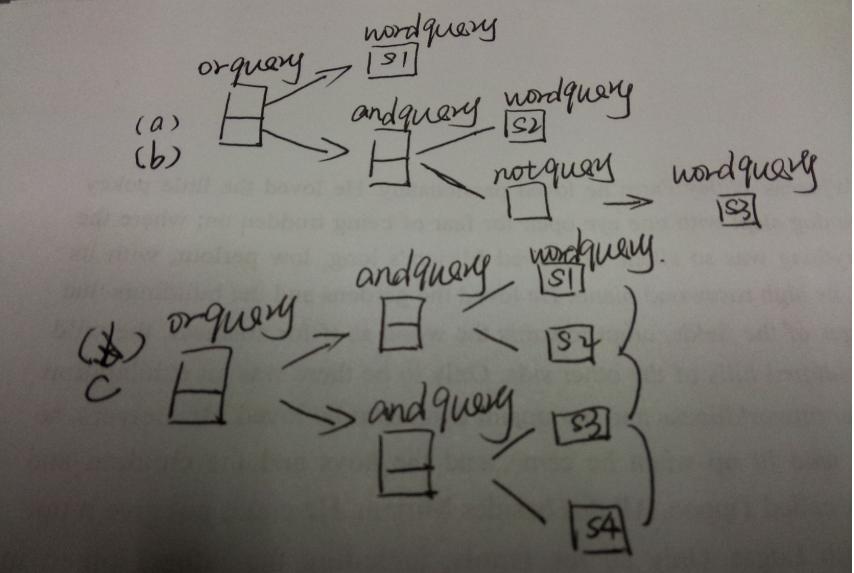 wordquery
orquery
S1
(a)
(b)
andquery
wordquery
S2
notquery
wordquery
S3
wordquery.
andquery
S1
orquery
S2
C
andquery
S3
S4